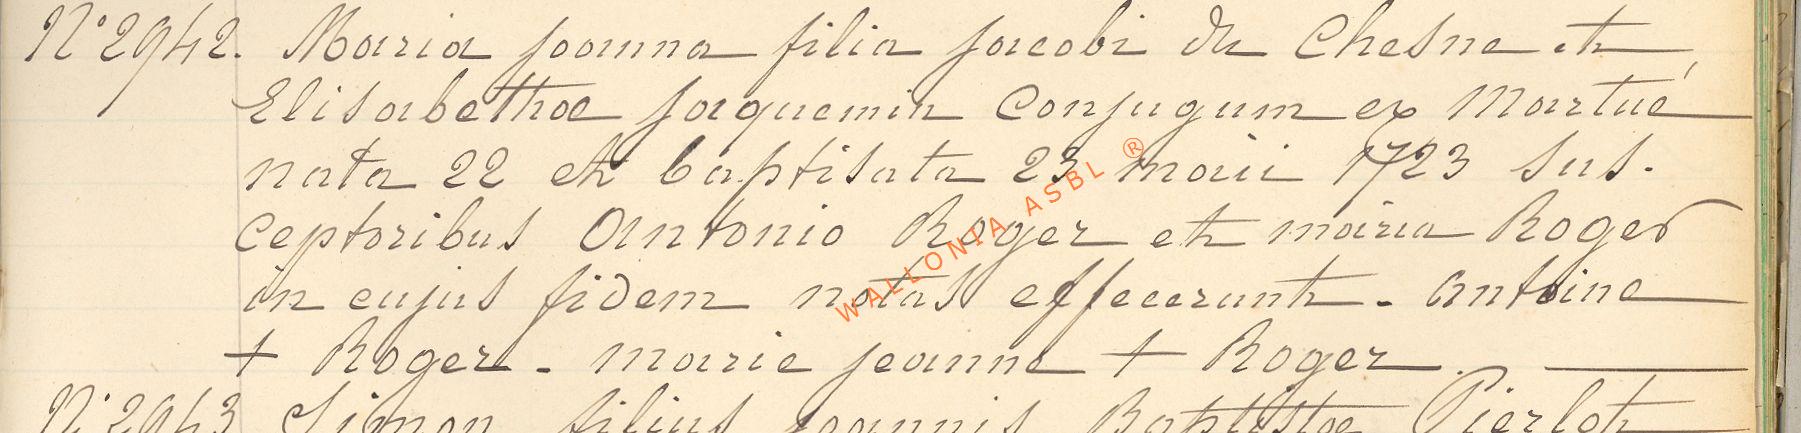 N° 2942. Maria Joanna filia Jacobi du Chesne et
Elisabethae Jaquemin conjugum ex Martué
nata 22 et baptisata 23 maii 1723 sus-
ceptoribus Antonio Roger et maria Roger
in cujus fidem notas effecerunt - Antoine
+ Roger - marie jeanne + Roger.
N° 2943 Simon filius Joannis Baptistae Pierlot
WALLONIA ASBL ®